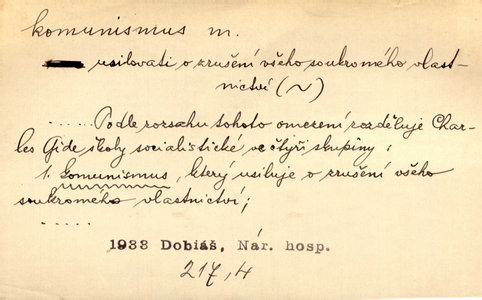 komunismus m.
usilovati o zrušení všeho soukromého vlast-
nictví (~)
..... Podle rozsahu tohoto omezení rozděluje Char-
les Gide školy socialistické ve čtyři skupiny:
1. Komunismus, který usiluje o zrušení všeho
soukromého vlastnictví;
.....
1933 Dobiáš, Nár. hosp.
217,4